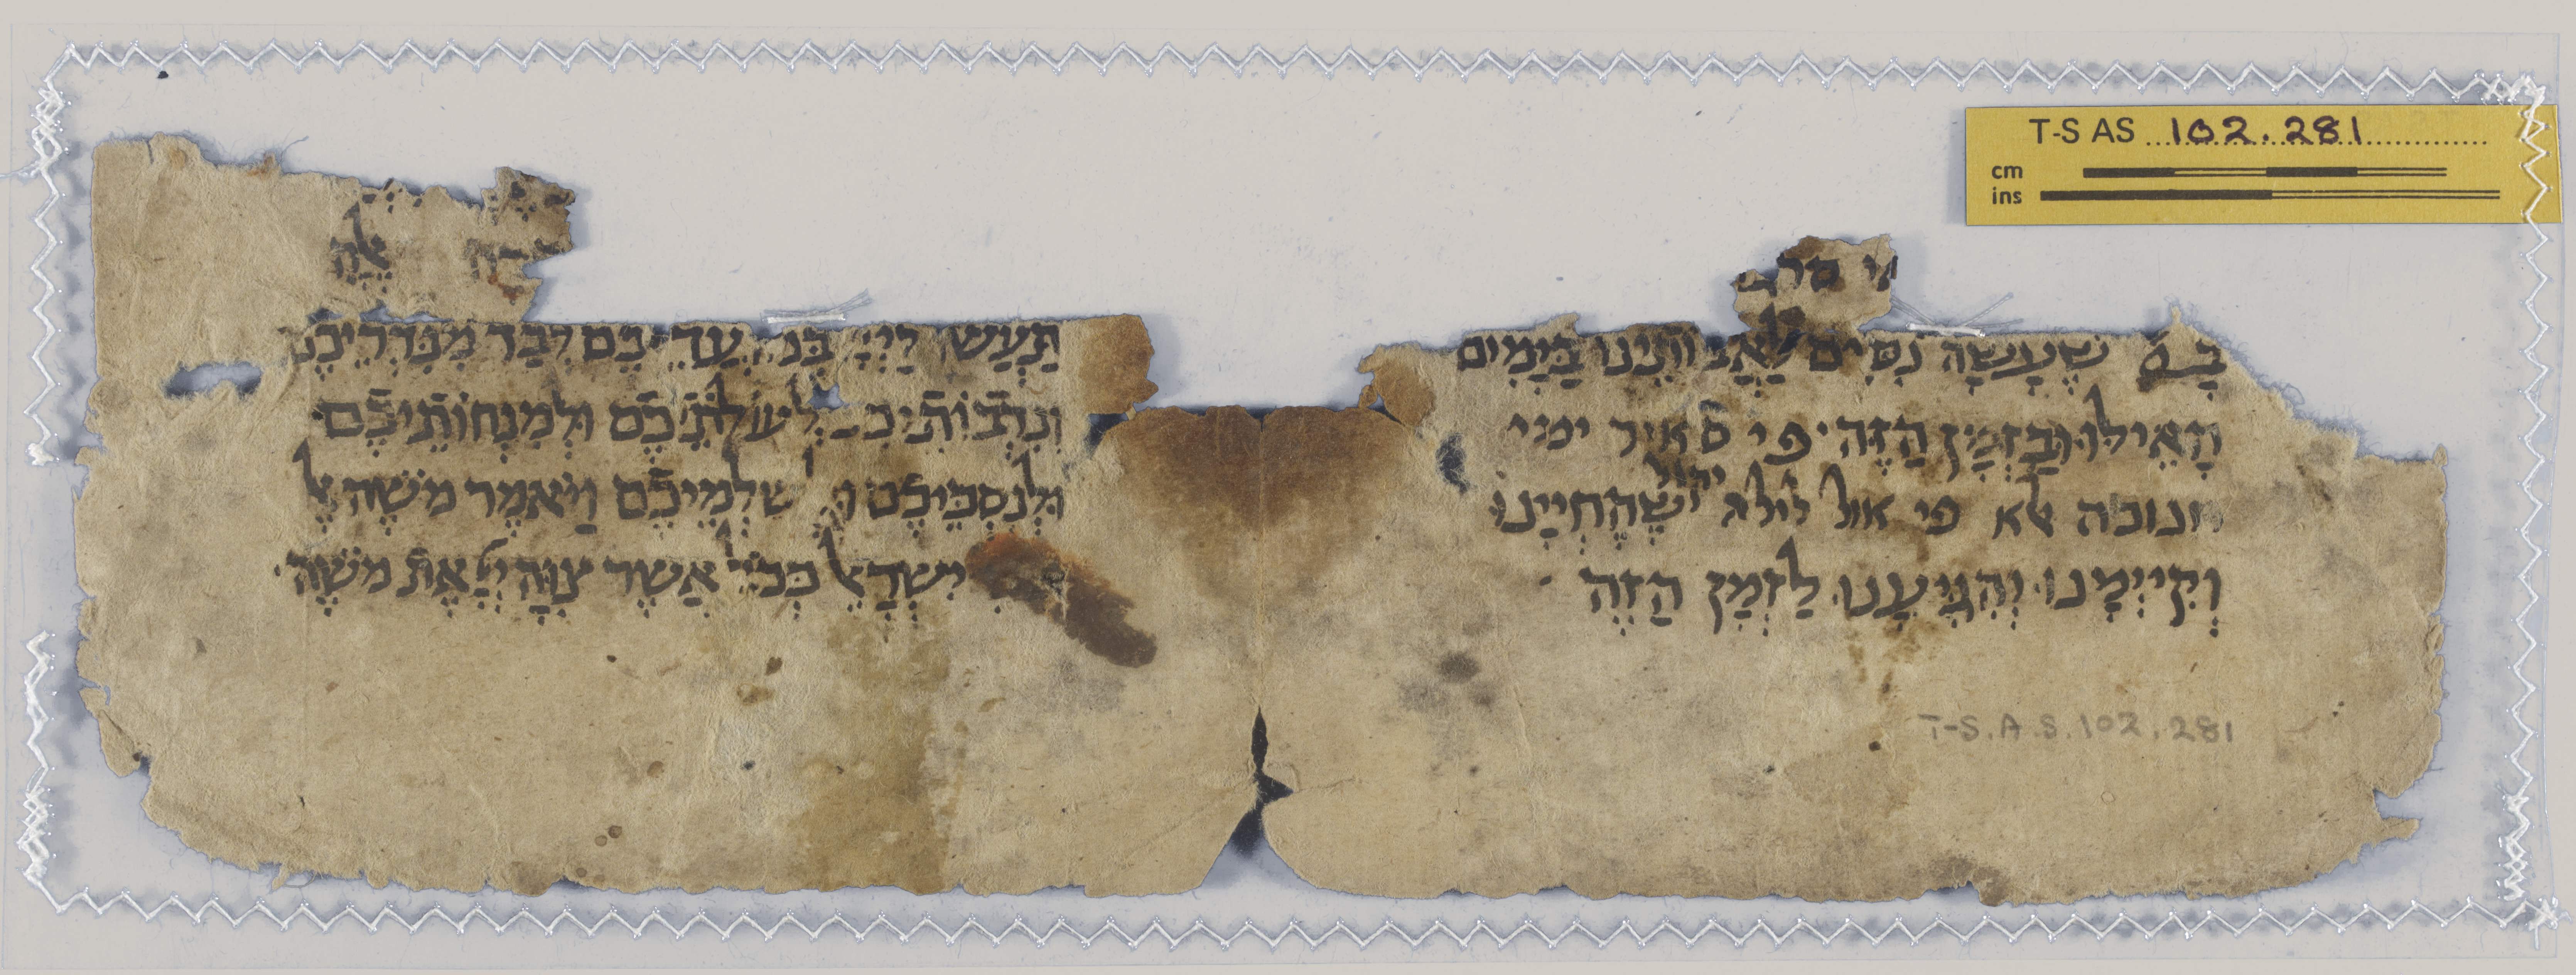 T-S AS 102.281
cm
ins
שֶׁעָשָׂה נִסִּים לַאֲבוֹתֵינוּ בַּיָּמִים
הָאֵילּוּ וּבַזְּמַן הַזֶּה פי סאיר ימי
חנוכה אלא פי אול לילה יקול שֶׁהֶחְיָינוּ
וְקִיְּימָנוּ וְהִגִּיעָנוּ לַזְּמַן הַזֶּה
T-S.A.S. 102.281
אלה
תַּעֲשׂוּ לַייָ בְּמוֹעֲדֵיכֶם לְבַד מִנִּדְרֵיכֶם
וְנִדְבוֹתֵיכֶם לְעֹלֹתֵיכֶם וּלְמִנְחוֹתֵיכֶם
וּלְנִסְכֵּיכֶם וּלְשַׁלְמֵיכֶם וַיֹּאמֶר מֹשֶׁה אֶל
יִשְׂרָאֵל כְּכֹל אֲשֶׁר צִוָּה יְיָ אֶת מֹשֶׁה